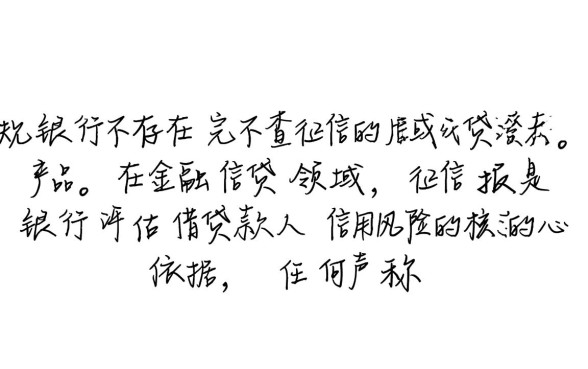 规银行不存在完不查征信的贷款。
产品。在金融信贷领域，征信报是
银行评估借贷款人信用风险的核的心
依据，任何声称